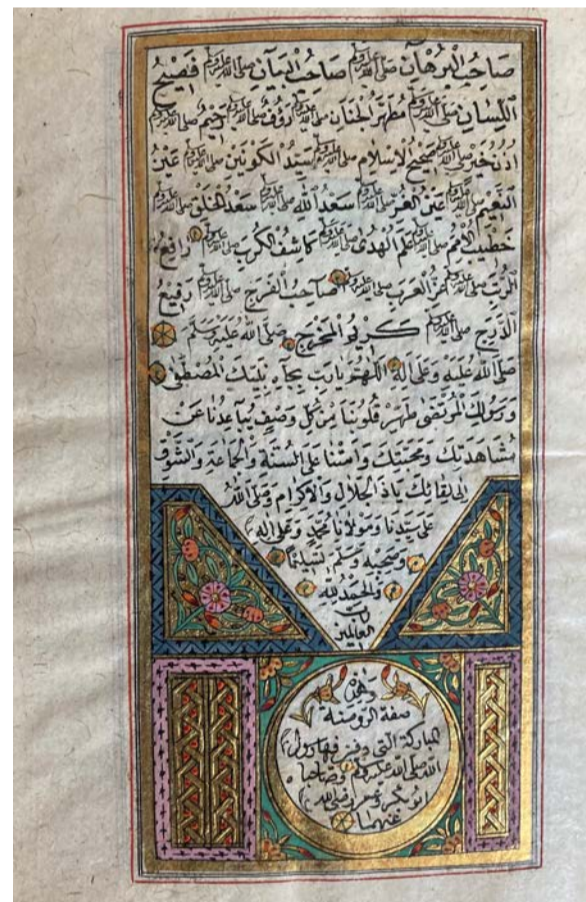 صَاحِبُ الْبُرْهَانِ صلى الله عليه وسلم صَاحِبُ الْبَيَانِ صلى الله عليه وسلم فَصِيحُ
اللِّسَانِ صلى الله عليه وسلم مُطَهَّرُ الْجَنَانِ صلى الله عليه وسلم رَؤُفٌ صلى الله عليه وسلم رَحِيمٌ صلى الله عليه وسلم
اُذُنُ خَيْرٍ صلى الله عليه وسلم صَحِيحُ الْاِسْلَامِ صلى الله عليه وسلم سَيِّدُ الْكَوْنَيْنِ صلى الله عليه وسلم عَيْنُ
النَّعِيمِ صلى الله عليه وسلم عَيْنُ الْغُرِّ صلى الله عليه وسلم سَعْدُ اللّٰهِ صلى الله عليه وسلم سَعْدُ الْخَلْقِ صلى الله عليه وسلم
خَطِيبُ الْاُمَمِ صلى الله عليه وسلم عَلَمُ الْهُدٰى صلى الله عليه وسلم كَاشِفُ الْكُرَبِ صلى الله عليه وسلم رَافِعُ
الرُّتَبِ صلى الله عليه وسلم عِزُّ الْعَرَبِ صلى الله عليه وسلم صَاحِبُ الْفَرَجِ صلى الله عليه وسلم رَفِيعُ
الدَّرَجِ صلى الله عليه وسلم كَرِيمُ الْمَخْرَجِ صَلَّى اللّٰهُ عَلَيْهِ وَسَلَّمَ
صَلَّى اللّٰهُ عَلَيْهِ وَعَلٰى اٰلِهِ اَللّٰهُمَّ يَارَبِّ بِجَاهِ نَبِيِّكَ الْمُصْطَفٰى
وَرَسُولِكَ الْمُرْتَضٰى طَهِّرْ قُلُوبَنَا مِنْ كُلِّ وَصْفٍ يُبَاعِدُنَا عَنْ
مُشَاهَدَتِكَ وَمَحَبَّتِكَ وَاَمِتْنَا عَلَى السُّنَّةِ وَالْجَمَاعَةِ وَالشَّوْقِ
اِلٰى لِقَائِكَ يَاذَا الْجَلَالِ وَالْاِكْرَامِ وَصَلَّى اللّٰهُ
عَلٰى سَيِّدِنَا وَمَوْلَانَا مُحَمَّدٍ وَعَلٰى اٰلِهِ
وَصَحْبِهِ وَسَلَّمَ تَسْلِيمًا
وَالْحَمْدُ لِلّٰهِ
رَبِّ
الْعَالَمِينَ
وَهٰذِهِ
صفة الروضة
المباركة التى دفن فيها رسول
الله صلى الله عليه وسلم وصاحباه
ابو بكر وعمر رضى الله
عنهما